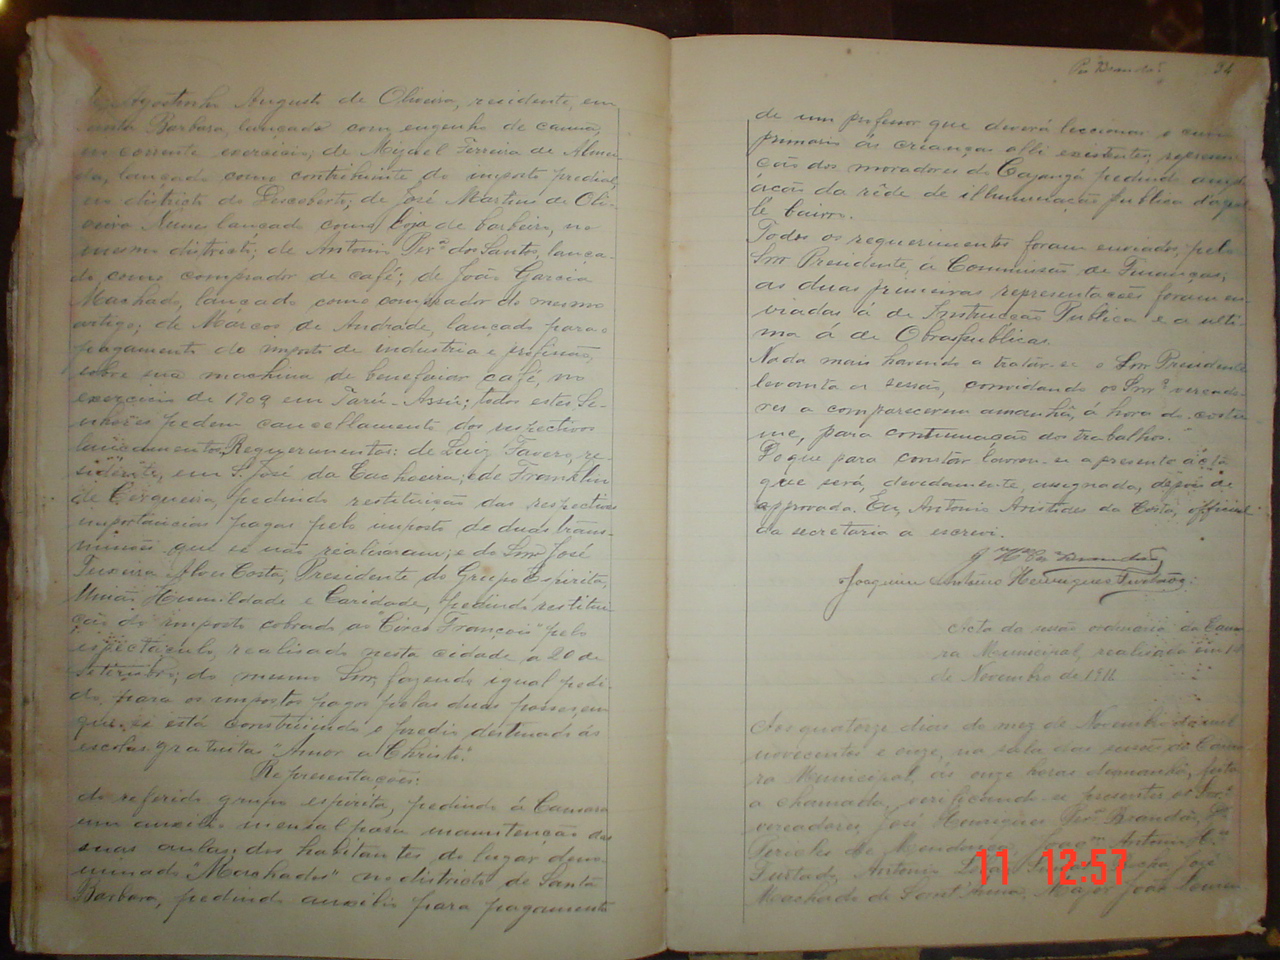 Agostinho Augusto de Oliveira, residente, em
Santa Barbara, lançado com engenho de canna,
no corrente exercicio; de Miguel Ferreira de Almei-
da, lançado como contribuinte do imposto predial,
no districto do Descoberto; de José Martins de Oli-
veira Nunes lançado com loja de barbeiro, no
mesmo districto; de Antonio Per.ª dos Santos, lança-
do como comprador de café; de João Garcia
Machado, lançado como comprador do mesmo
artigo; de Marcos de Andrade, lançado para o
pagamento do imposto de industria e profissão,
sobre sua machina de beneficiar café, no
exercicio de 1909 em Tarú-Assú; todos estes Se-
nhores pedem cancellamento dos respectivos
lançamentos. Requerimentos: de Luiz Favero, re-
sidente, em S. José da Cachoeira, e de Franklin
de Cerqueira, pedindo restituição das respectivas
importancias pagas pelo imposto de duas trans-
missões que se não realisaram; e do Snr. José
Teixeira Alves Costa, Presidente do Grupo Espirita,
União Humildade e Caridade, pedindo restitui-
ção do imposto cobrado ao "Circo François" pelo
espectaculo, realisado nesta cidade, a 20 de
Setembro; do mesmo Snr, fazendo igual pedi-
do, para os impostos pagos pelas duas
que se está construindo o predio destinado ás
escolas gratuitas "Amor a Christo".
Representações:
do referido grupo espirita, pedindo á Camara
um auxilio mensal para manutenção das
suas aulas; dos habitantes do lugar deno-
minado "Machados" no districto de Santa
Barbara, pedindo auxilio para pagamento
Per Brandão 34
de um professor que deverá leccionar o
primario ás crianças alli existentes; represen-
ção dos moradores do Cajangá pedindo ampli-
ação da rêde de illuminação publica d'aquel-
le bairro.
Todos os requerimentos foram enviados, pelo
Snr. Presidente, á Commissão de Finanças,
as duas primeiras representações foram en-
viadas á de Instrucção Publica e a ulti-
ma á de Obras publicas.
Nada mais havendo a tratar-se o Snr. Presidente
levanta a sessão, convidando os Snr.ˢ vereado-
res a comparecerem amanhã, á hora do costu-
me, para continuação dos trabalhos.
Do que para constar lavrou-se a presente acta
que será, devidamente, assignada, depois de
approvada. Eu, Antonio Aristides da Costa, official
da secretaria a escrevi.
Brandão
Joaquim Antonio Henriques Furtado
Acta da sessão ordinaria da Cama-
ra Municipal, realisada em 14
de Novembro de 1911
Aos quatorze dias do mez de Novembro de mil
novecentos e onze, na sala das sessões da Cama-
ra Municipal, ás onze horas da manhã, feita
a chamada, verificando-se presentes os Snr.ˢ
vereadores José Henriques Per.ª Brandão, Dr.
Pericles de Mendonça, Joaq.ᵐ Antonio H.
Furtado, Antonio José
Machado de Sant'Anna, Major João
11 12:57